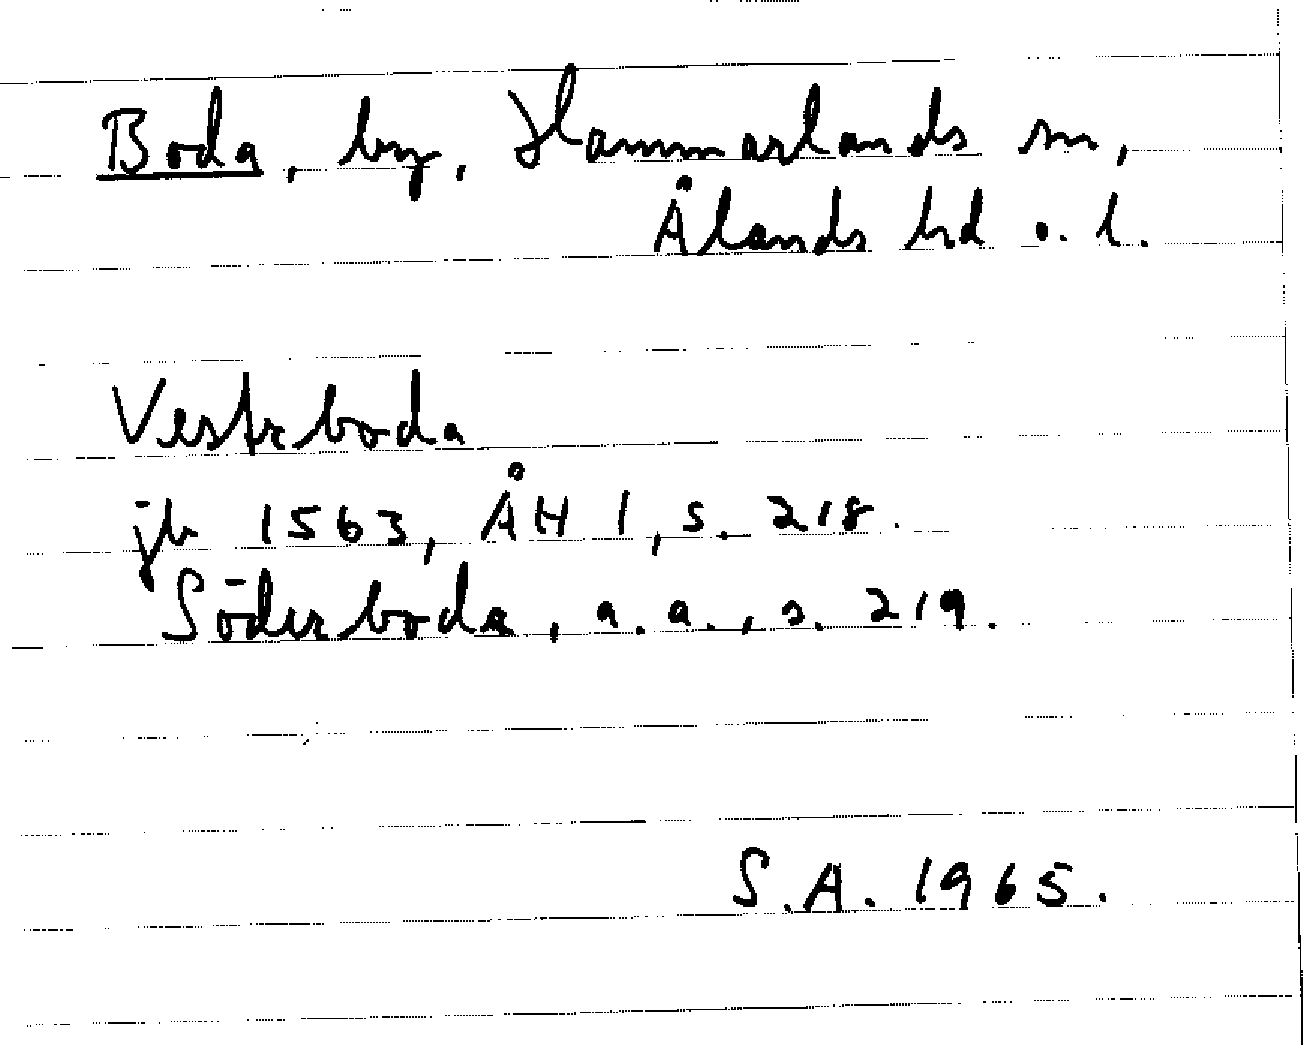 Boda, by, Hammarlands sn,
Ålands hd o. l.
Vestrboda
jb 1563, ÅH 1, s. 218.
Söderboda, a. a., s. 219.
S.A. 1965.